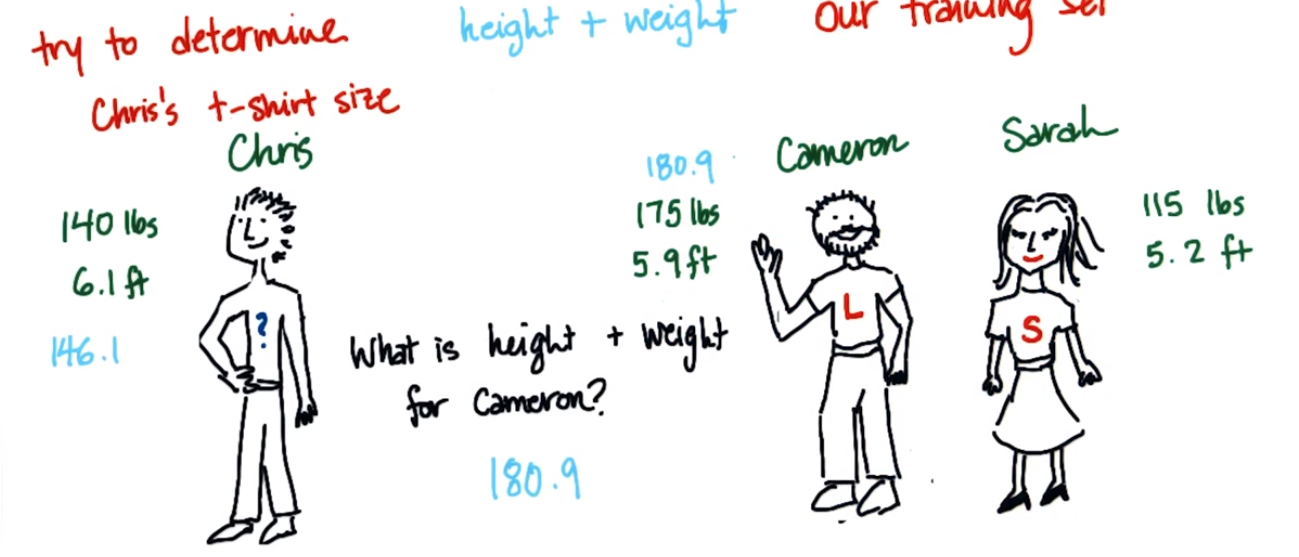 try to determine
Chris's t-shirt size
height + weight
our training set
Chris
140 lbs
6.1 ft
146.1
?
What is height + weight
for Cameron?
180.9
180.9
175 lbs
5.9 ft
Cameron
L
Sarah
S
115 lbs
5.2 ft